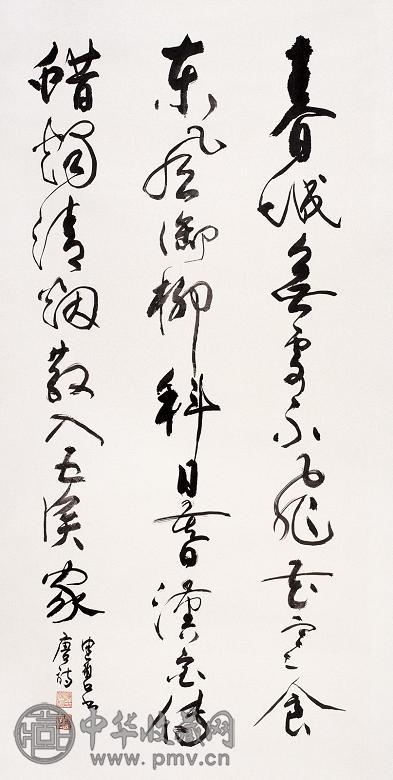 春城無處不飛花寒食
東風御柳斜日暮漢宮傳
蜡燭清烟散入五侯家
唐詩
中华收藏网
www.pmv.cn